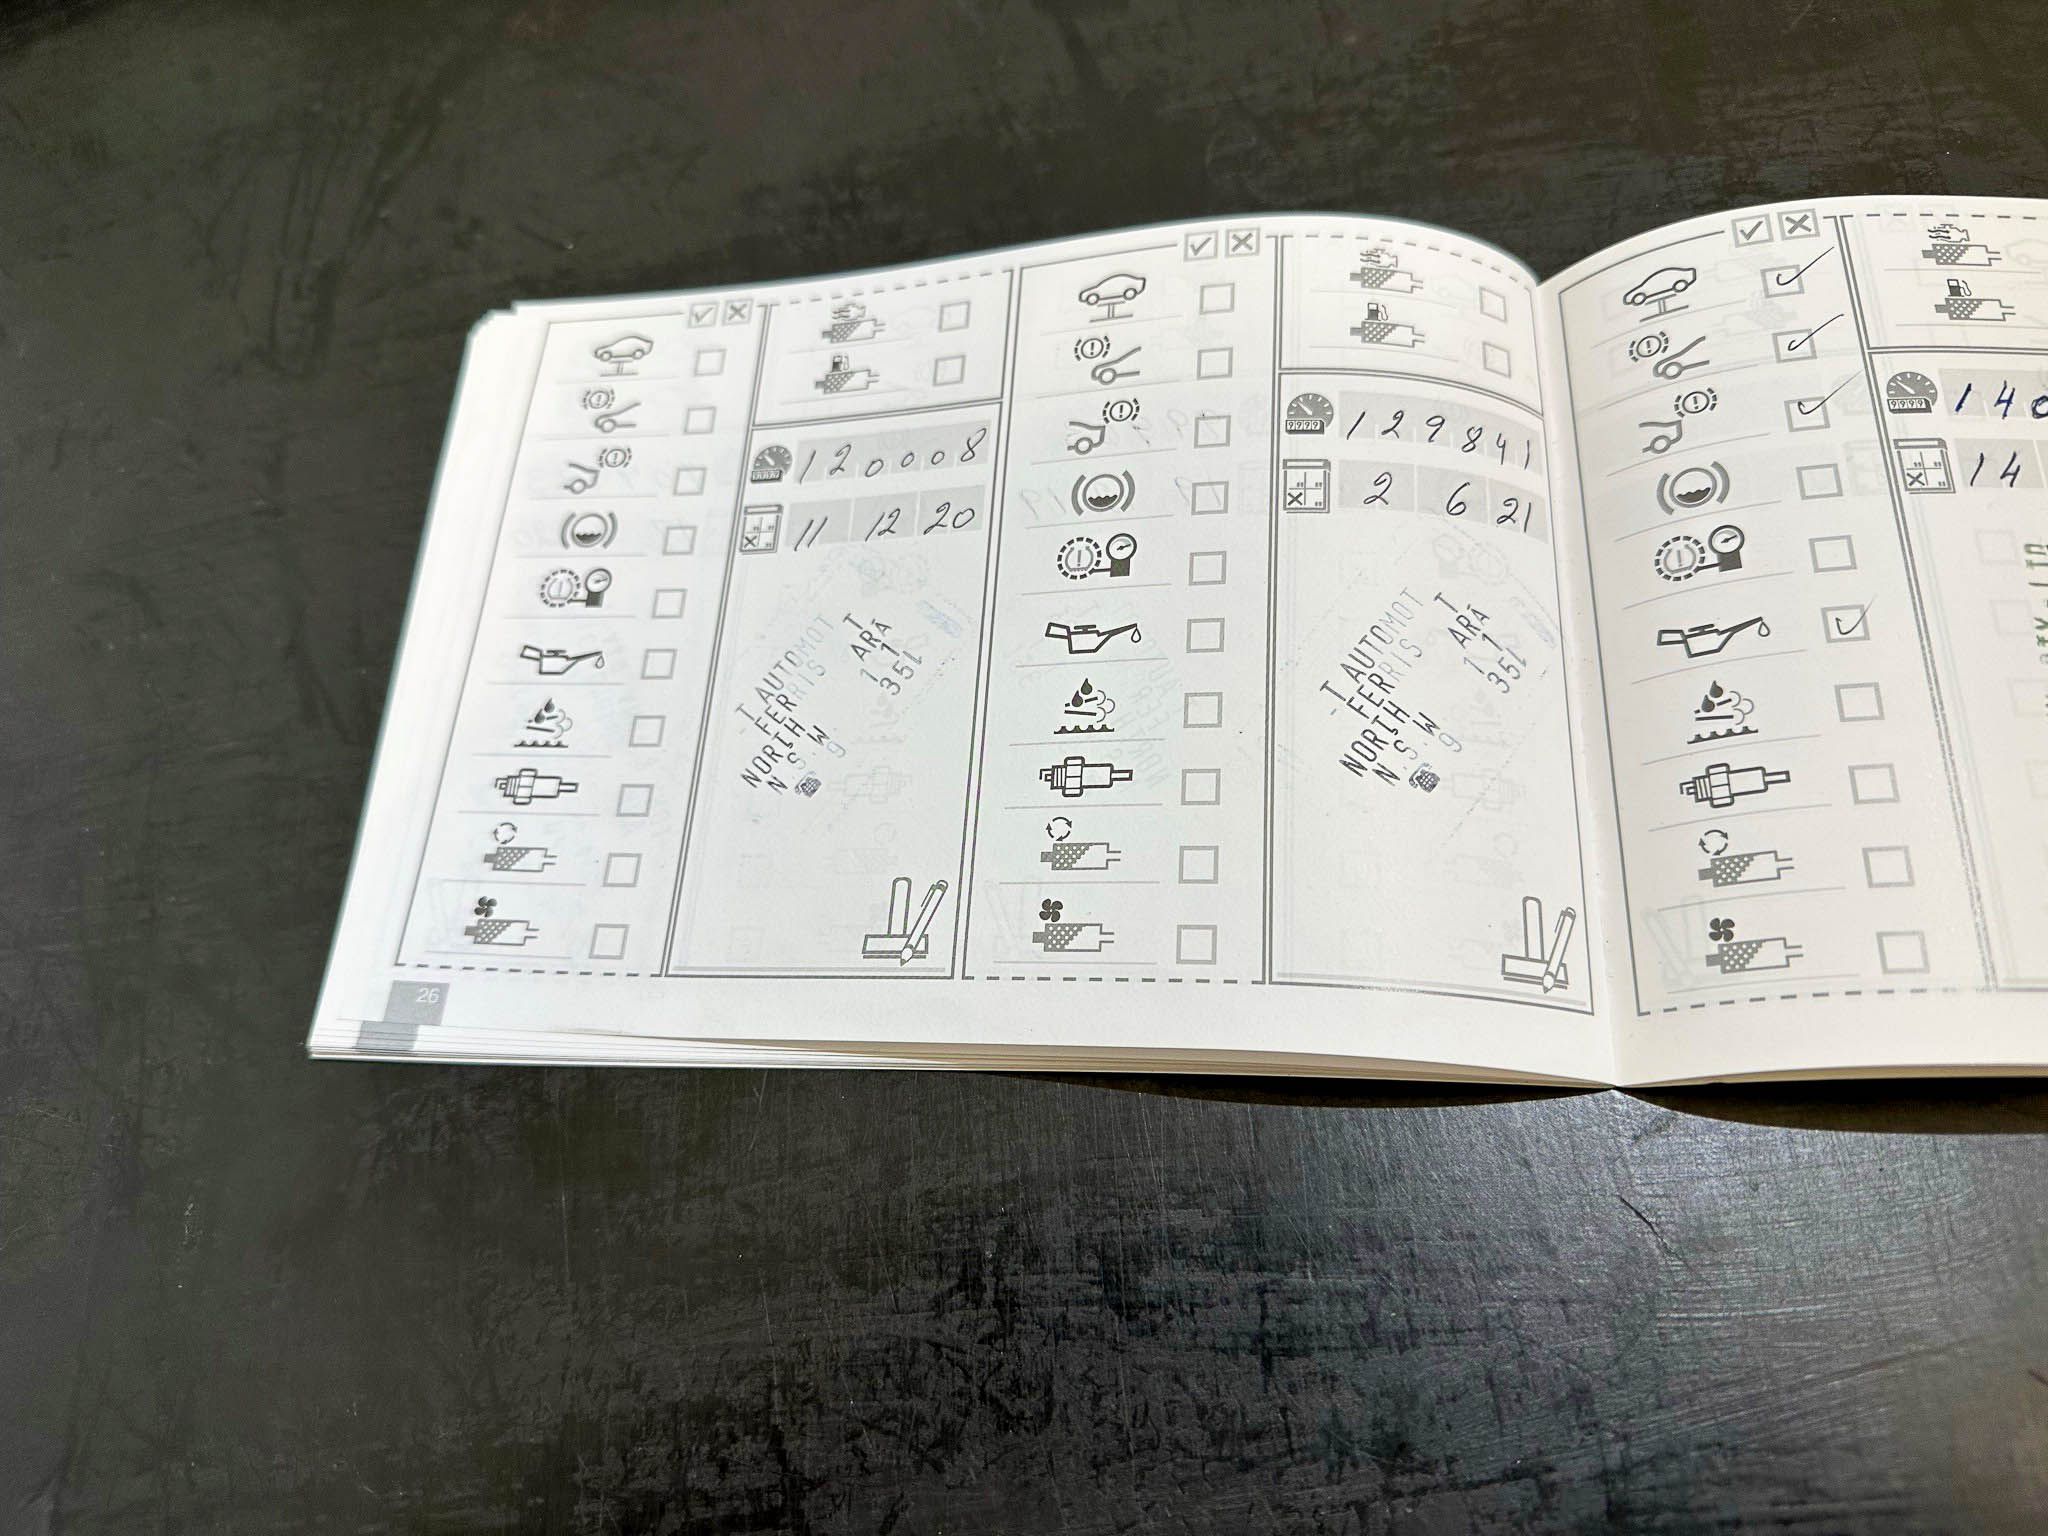 120008
11 12 20
T AUTOMOT
FERRIS
NORTH
N.S.W
9
T
ARA
1 1
35
26
129841
2 6 21
T AUTOMOT
FERRIS
NORTH
N.S.W
9
T
ARA
1 1
35
140
14